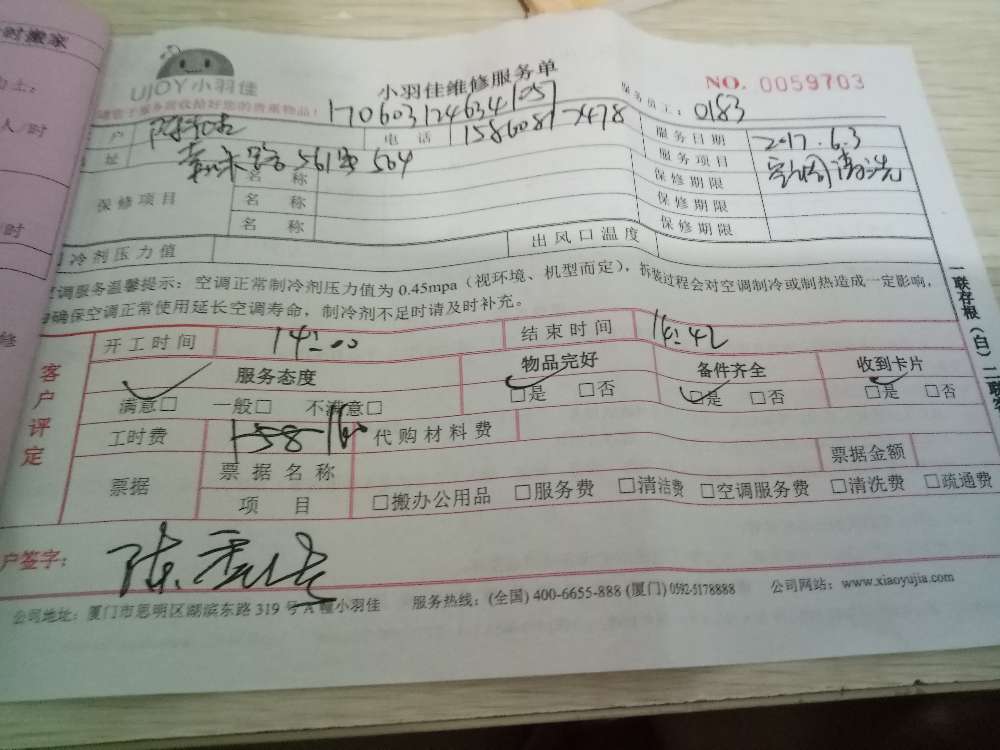 时搬家
士:
人/时
时
修
UJOY小羽佳
小羽佳维修服务单
NO. 0059703
请在服务前收拾好您的贵重物品!
170603124634 1057
服务员工: 0183
户
电话
服务日期 2017.6.3
址
561号 504
服务项目 空调清洗
保修项目
名称
保修期限
名称
保修期限
名称
保修期限
冷剂压力值
出风口温度
空调服务温馨提示:空调正常制冷剂压力值为 0.45mpa(视环境、机型而定),拆装过程会对空调制冷或制热造成一定影响,
确保空调正常使用延长空调寿命,制冷剂不足时请及时补充。
一联存根(白)二联
客户评定
开工时间 14:00
结束时间 14:42
服务态度
物品完好
备件齐全
收到卡片
满意□ 一般□ 不满意□
□是 □否
□是 □否
□是 □否
工时费 158
代购材料费
票据
票据名称
票据金额
项目
□搬办公用品 □服务费 □清洁费 □空调服务费 □清洗费 □疏通费
户签字:
公司地址:厦门市思明区湖滨东路 319 号 A 幢小羽佳
服务热线:(全国) 400-6655-888 (厦门) 0592-5178888
公司网站:www.xiaoyujia.com